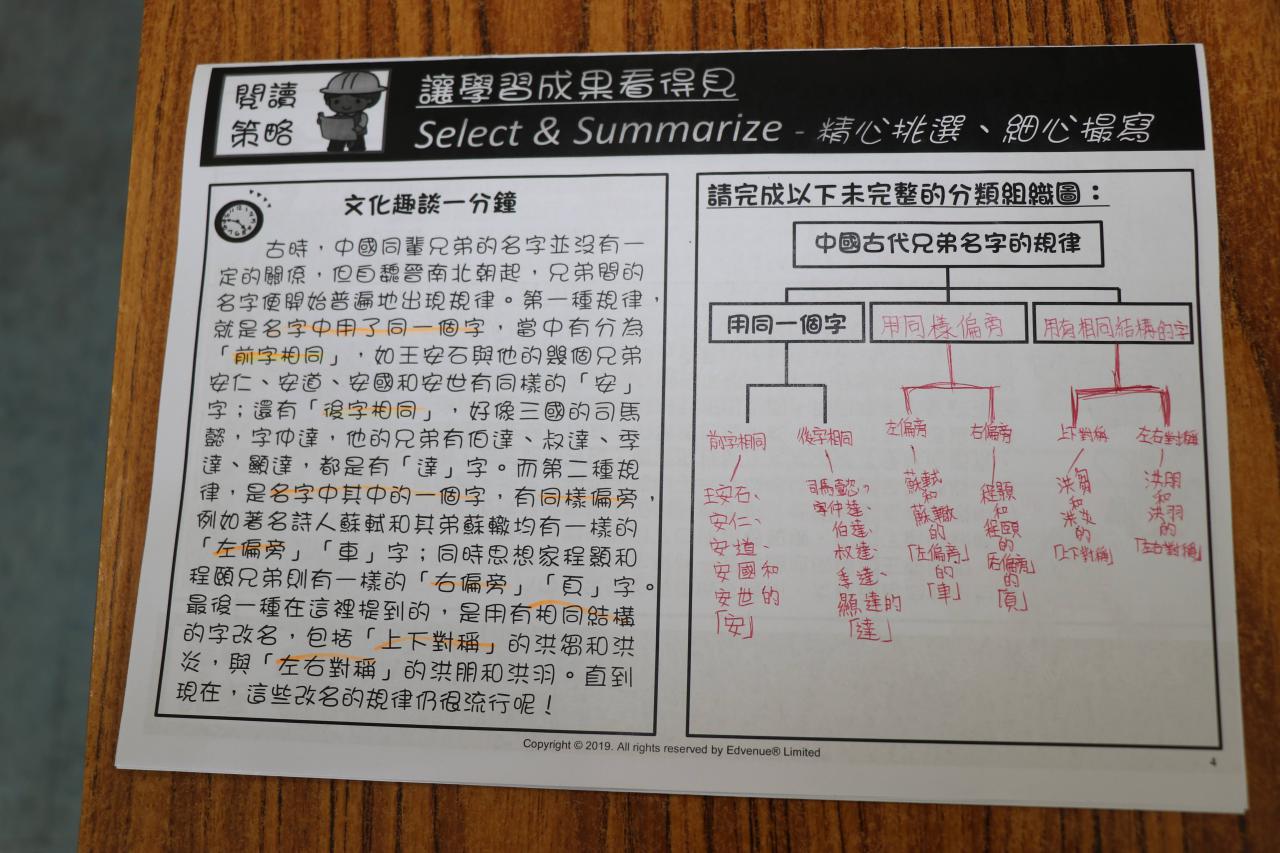 閱讀
策略
讓學習成果看得見
Select & Summarize - 精心挑選、細心撮寫
文化趣談一分鐘
古時，中國同輩兄弟的名字並沒有一
定的關係，但自魏晉南北朝起，兄弟間的
名字便開始普遍地出現規律。第一種規律，
就是名字中用了同一個字，當中有分為
「前字相同」，如王安石與他的幾個兄弟
安仁、安道、安國和安世有同樣的「安」
字；還有「後字相同」，好像三國的司馬
懿，字仲達，他的兄弟有伯達、叔達、季
達、顯達，都是有「達」字。而第二種規
律，是名字中其中的一個字，有同樣偏旁，
例如著名詩人蘇軾和其弟蘇轍均有一樣的
「左偏旁」「車」字；同時思想家程顥和
程頤兄弟則有一樣的「右偏旁」「頁」字。
最後一種在這裡提到的，是用有相同結構
的字改名，包括「上下對稱」的洪芻和洪
炎，與「左右對稱」的洪朋和洪羽。直到
現在，這些改名的規律仍很流行呢！
請完成以下未完整的分類組織圖：
中國古代兄弟名字的規律
用同一個字
用同樣偏旁
用有相同結構的字
前字相同
後字相同
左偏旁
右偏旁
上下對稱
左右對稱
王安石、
安仁、
安道、
安國和
安世的
「安」
司馬懿，
字仲達、
伯達、
叔達、
季達、
顯達的
「達」
蘇軾
和
蘇轍
的
「左偏旁」
的
「車」
程顥
和
程頤
的
「右偏旁」
的
「頁」
洪芻
和
洪炎
的
「上下對稱」
洪朋
和
洪羽
的
「左右對稱」
Copyright © 2019. All rights reserved by Edvenue® Limited
4